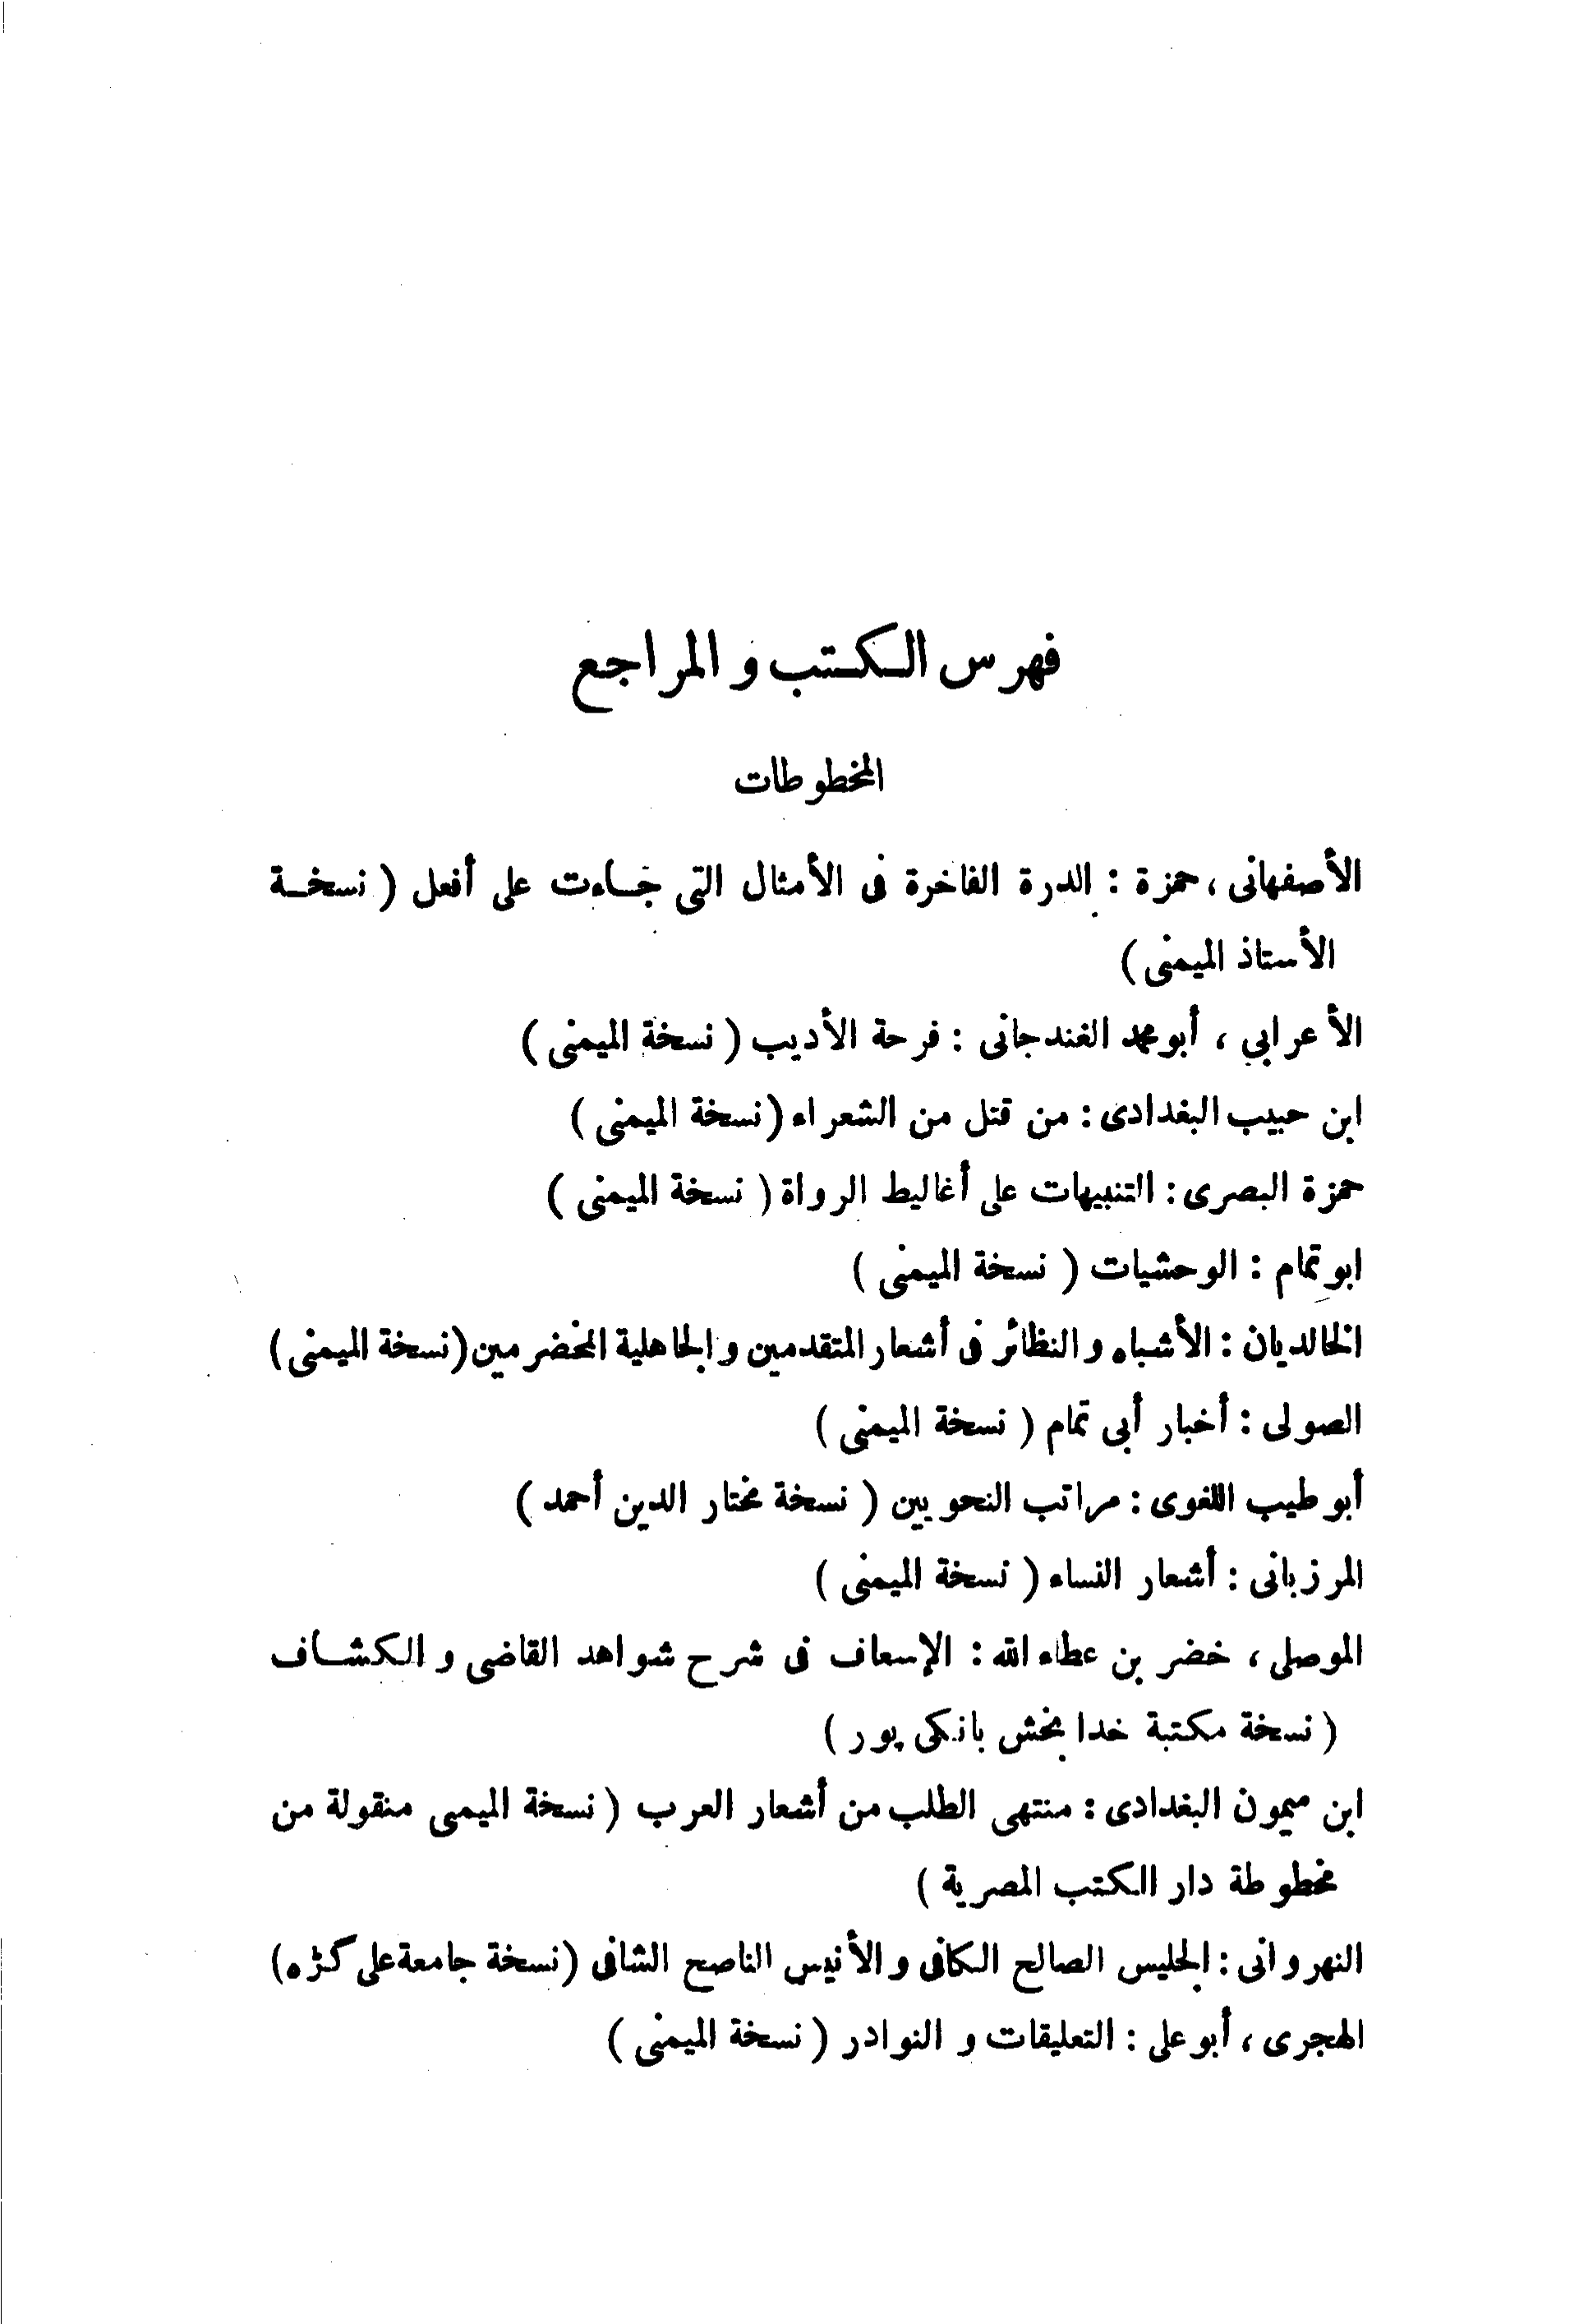 فهرس الكتب و المراجع
المخطوطات
الأصفهانى ، حمزة : الدرة الفاخرة فى الأمثال التى جاءت على أفعل ( نسخة
الأستاذ الميمنى )
الأعرابي ، أبو محمد الغندجانى : فرحة الأديب ( نسخة الميمنى )
ابن حبيب البغدادى : من قتل من الشعراء ( نسخة الميمنى )
حمزة البصرى : التنبيهات على أغاليط الرواة ( نسخة الميمنى )
ابو تمام : الوحشيات ( نسخة الميمنى )
الخالديان : الأشباه و النظائر فى أشعار المتقدمين و الجاهلية المخضرمين ( نسخة الميمنى )
الصولى : أخبار أبى تمام ( نسخة الميمنى )
أبو طيب اللغوى : مراتب النحويين ( نسخة مختار الدين أحمد )
المرزبانى : أشعار النساء ( نسخة الميمنى )
الموصلى ، خضر بن عطاء الله : الإسعاف فى شرح شواهد القاضى و الكشاف
( نسخة مكتبة خدا بخش بانكى پور )
ابن ميمون البغدادى : منتهى الطلب من أشعار العرب ( نسخة الميمى منقولة من
مخطوطة دار الكتب المصرية )
النهروانى : الجليس الصالح الكافى و الأنيس الناصح الشافى ( نسخة جامعة على كڑه )
الهجرى ، أبو على : التعليقات و النوادر ( نسخة الميمنى )